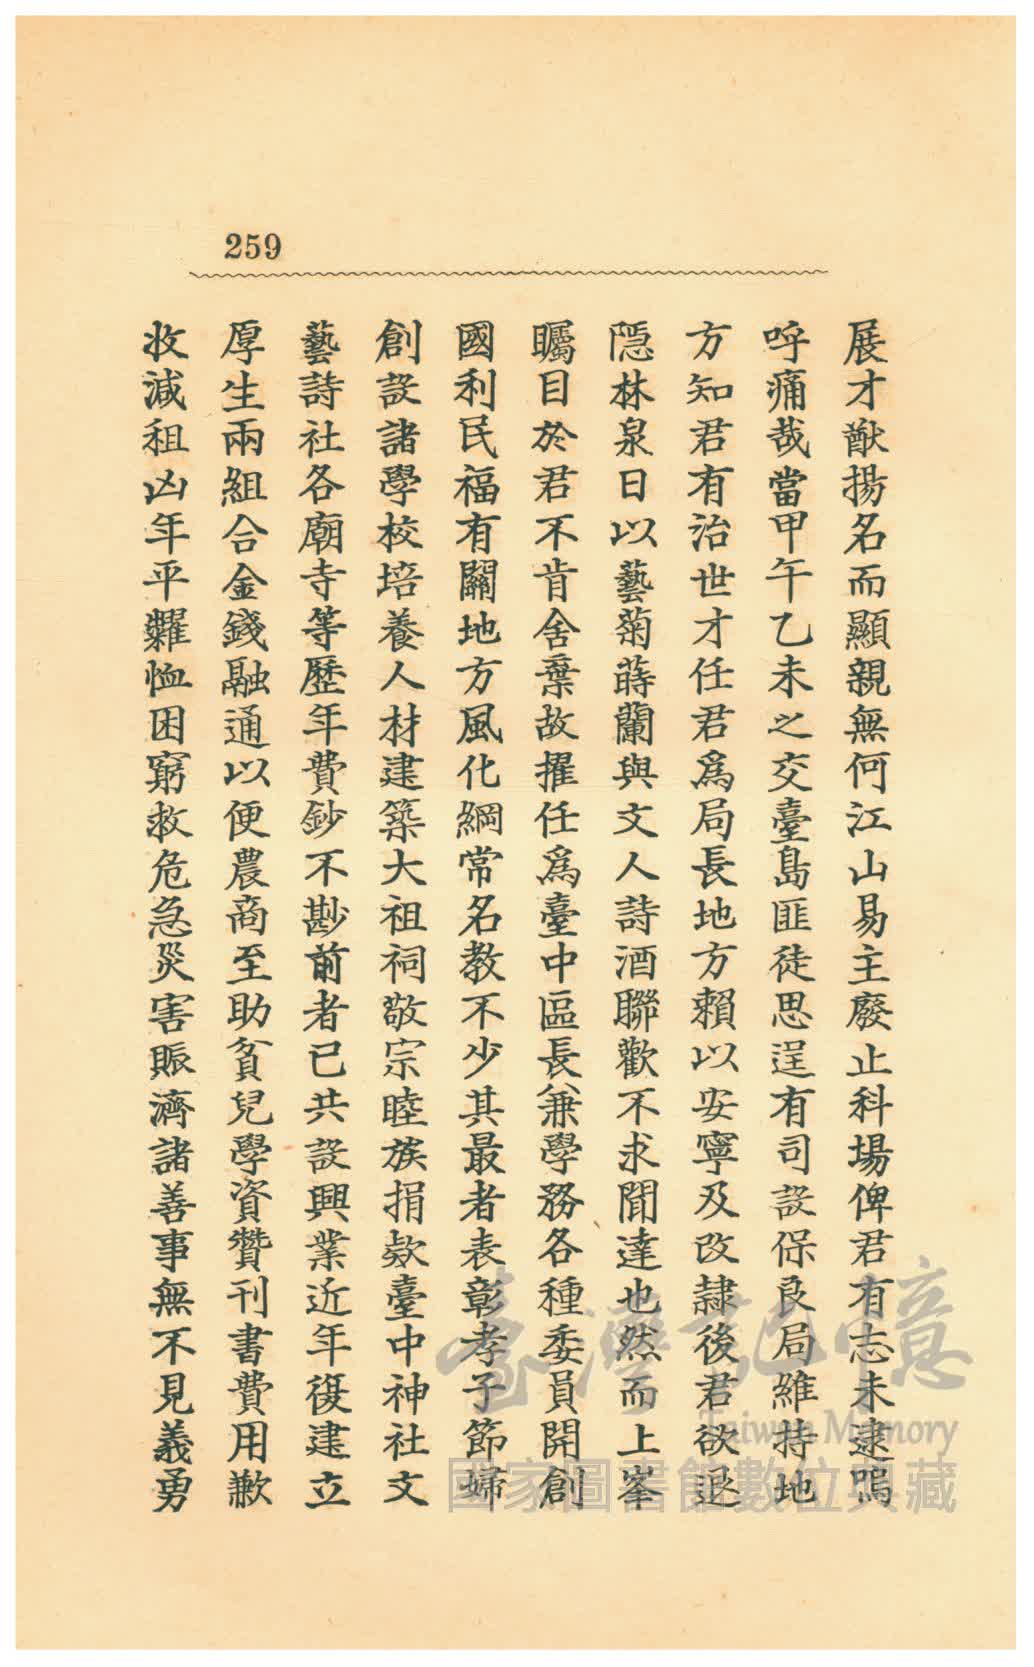 259
展才猷揚名而顯親無何江山易主廢止科場俾君有志未逮嗚
呼痛哉當甲午乙未之交臺島匪徒思逞有司設保良局維持地
方知君有治世才任君爲局長地方賴以安寧及改隸後君欲退
隱林泉日以藝菊蒔蘭與文人詩酒聯歡不求聞達也然而上峯
矚目於君不肯舍棄故擢任爲臺中區長兼學務各種委員開創
國利民福有關地方風化綱常名教不少其最者表彰孝子節婦
創設諸學校培養人材建築大祖祠敬宗睦族捐欵臺中神社文
藝詩社各廟寺等歷年費鈔不尠前者已共設興業近年復建立
厚生兩組合金錢融通以便農商至助貧兒學資贊刊書費用歉
收減租凶年平糶恤困窮救危急災害賑濟諸善事無不見義勇
臺灣記憶
Taiwan Memory
國家圖書館數位典藏